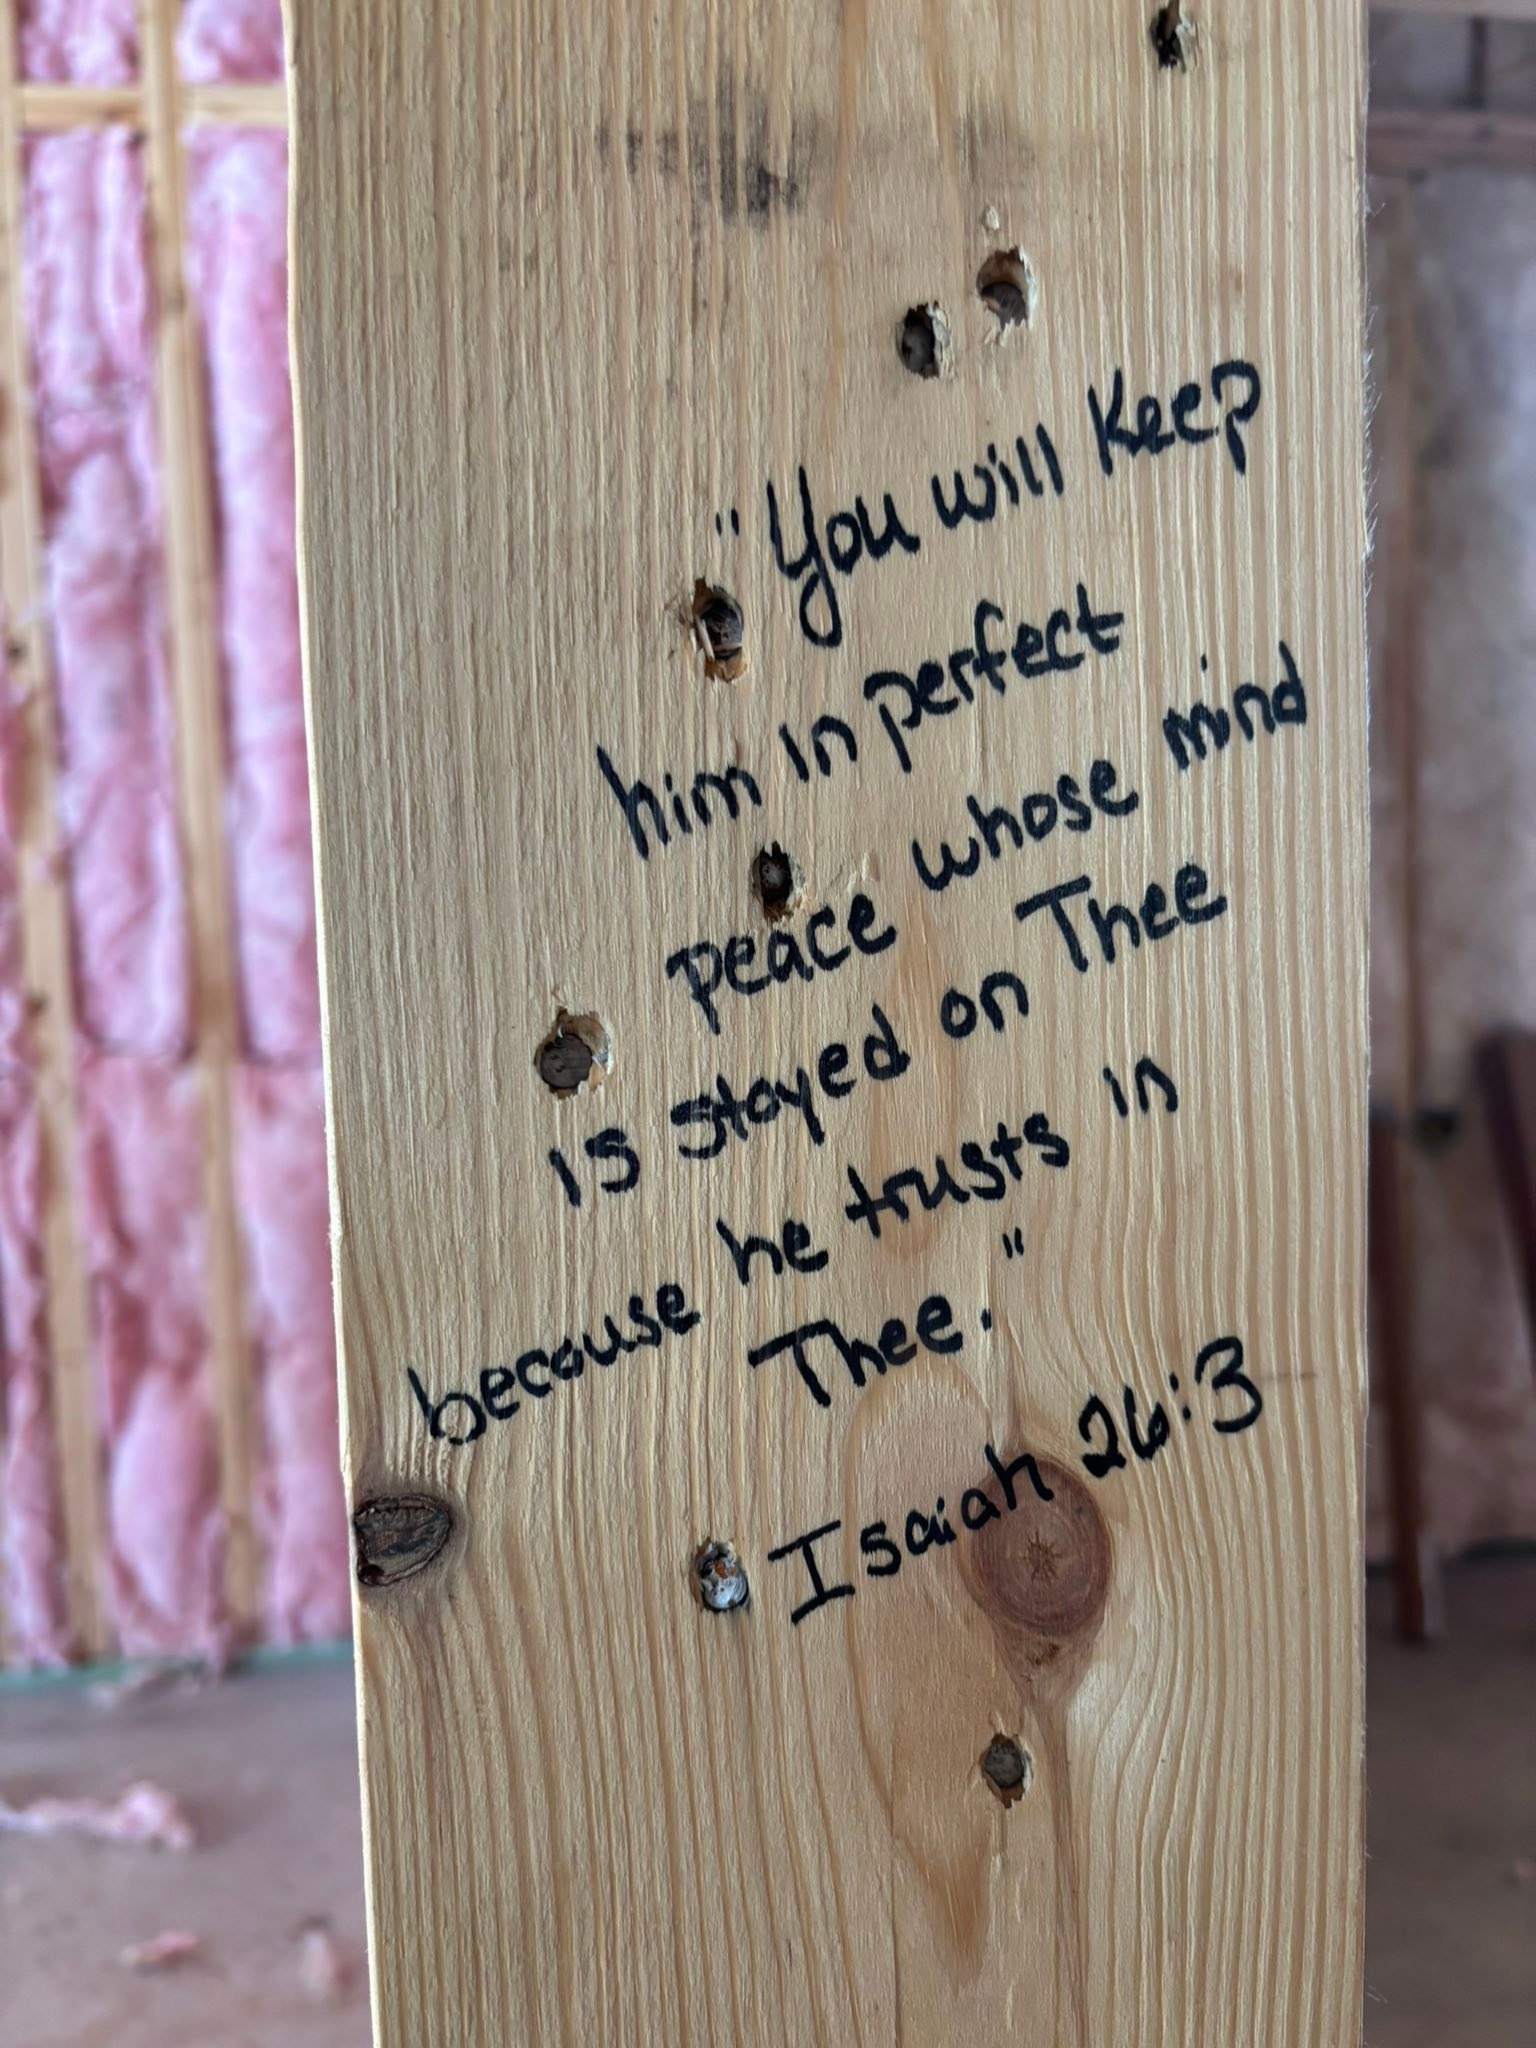 "You will keep
him in perfect
peace whose mind
is stayed on Thee
because he trusts in
Thee."
Isaiah 26:3